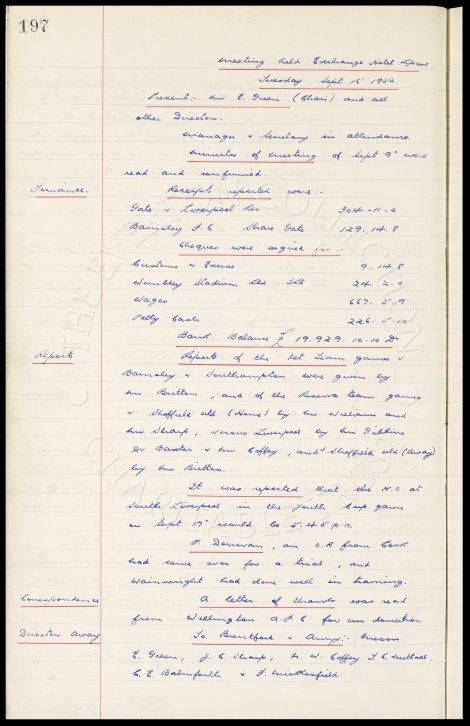 197
Meeting held Exchange Hotel Lpool
Tuesday Sept 15 1952
Present:- Mr E. Green (Chair) and all
other Directors.
Manager & Secretary in attendance
Minutes of meeting of Sept 9th were
read and confirmed.
Finance.
Receipts reported were:-
Gate v Liverpool Res 304-11.0
Barnsley F.C Share Gate 129.14.8
Cheques were signed for:
Customs & Excise 9.14.8
Wembley Stadium Ltd Tkts 24.2.0
Wages 667.5.9
Petty Cash 226.5.10
Bank Balance £ 19.929.10.10 Dr
Reports
Reports of the 1st Team games v
Barnsley & Southampton were given by
Mr Britten, and of the Reserve team games
v Sheffield Utd (Home) by Mr Williams and
Mr Sharp, versus Liverpool by Mr Gibbins
Dr Baxter & Mr Coffey, and v Sheffield Utd (Away)
by Mr Britten.
It was reported that the K.O at
South Liverpool in the Youth Cup game
on Sept 17th would be 5.45 p.m.
P. Donovan, an O.R from Cork
had come over for a trial, and
Wainwright had done well in training.
Correspondence
A letter of thanks was read
from Wellington A.F.C for our donation
Director Away
To Brentford & Army:- Messrs
E. Green, J. C. Sharp, N. W. Coffey, T. C. Nuttall,
C. E. Balmforth & F. Micklesfield.
THE EVERTON COLLECTION
CHARITABLE TRUST